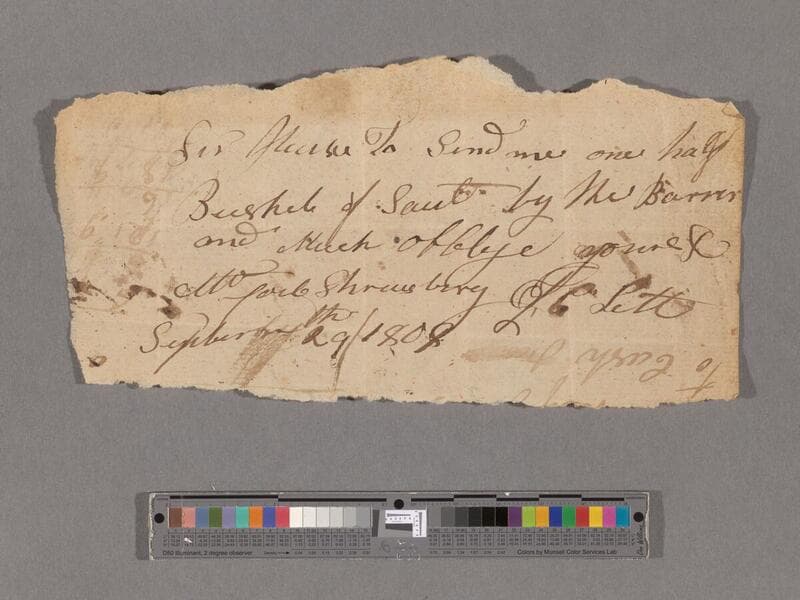 Sir Please To Send me one half
Bushel of Sault by the Barrer
and Much oblige yours &
Mr Joel Shrewsbery Lett
September 29th / 1808
To Cash
D50 Illuminant, 2 degree observer
Colors by Munsell Color Services Lab